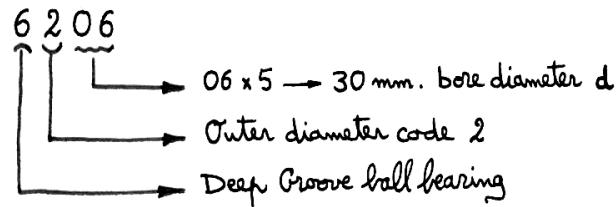 6 2 06
06 x 5 → 30 mm. bore diameter d
Outer diameter code 2
Deep Groove ball bearing